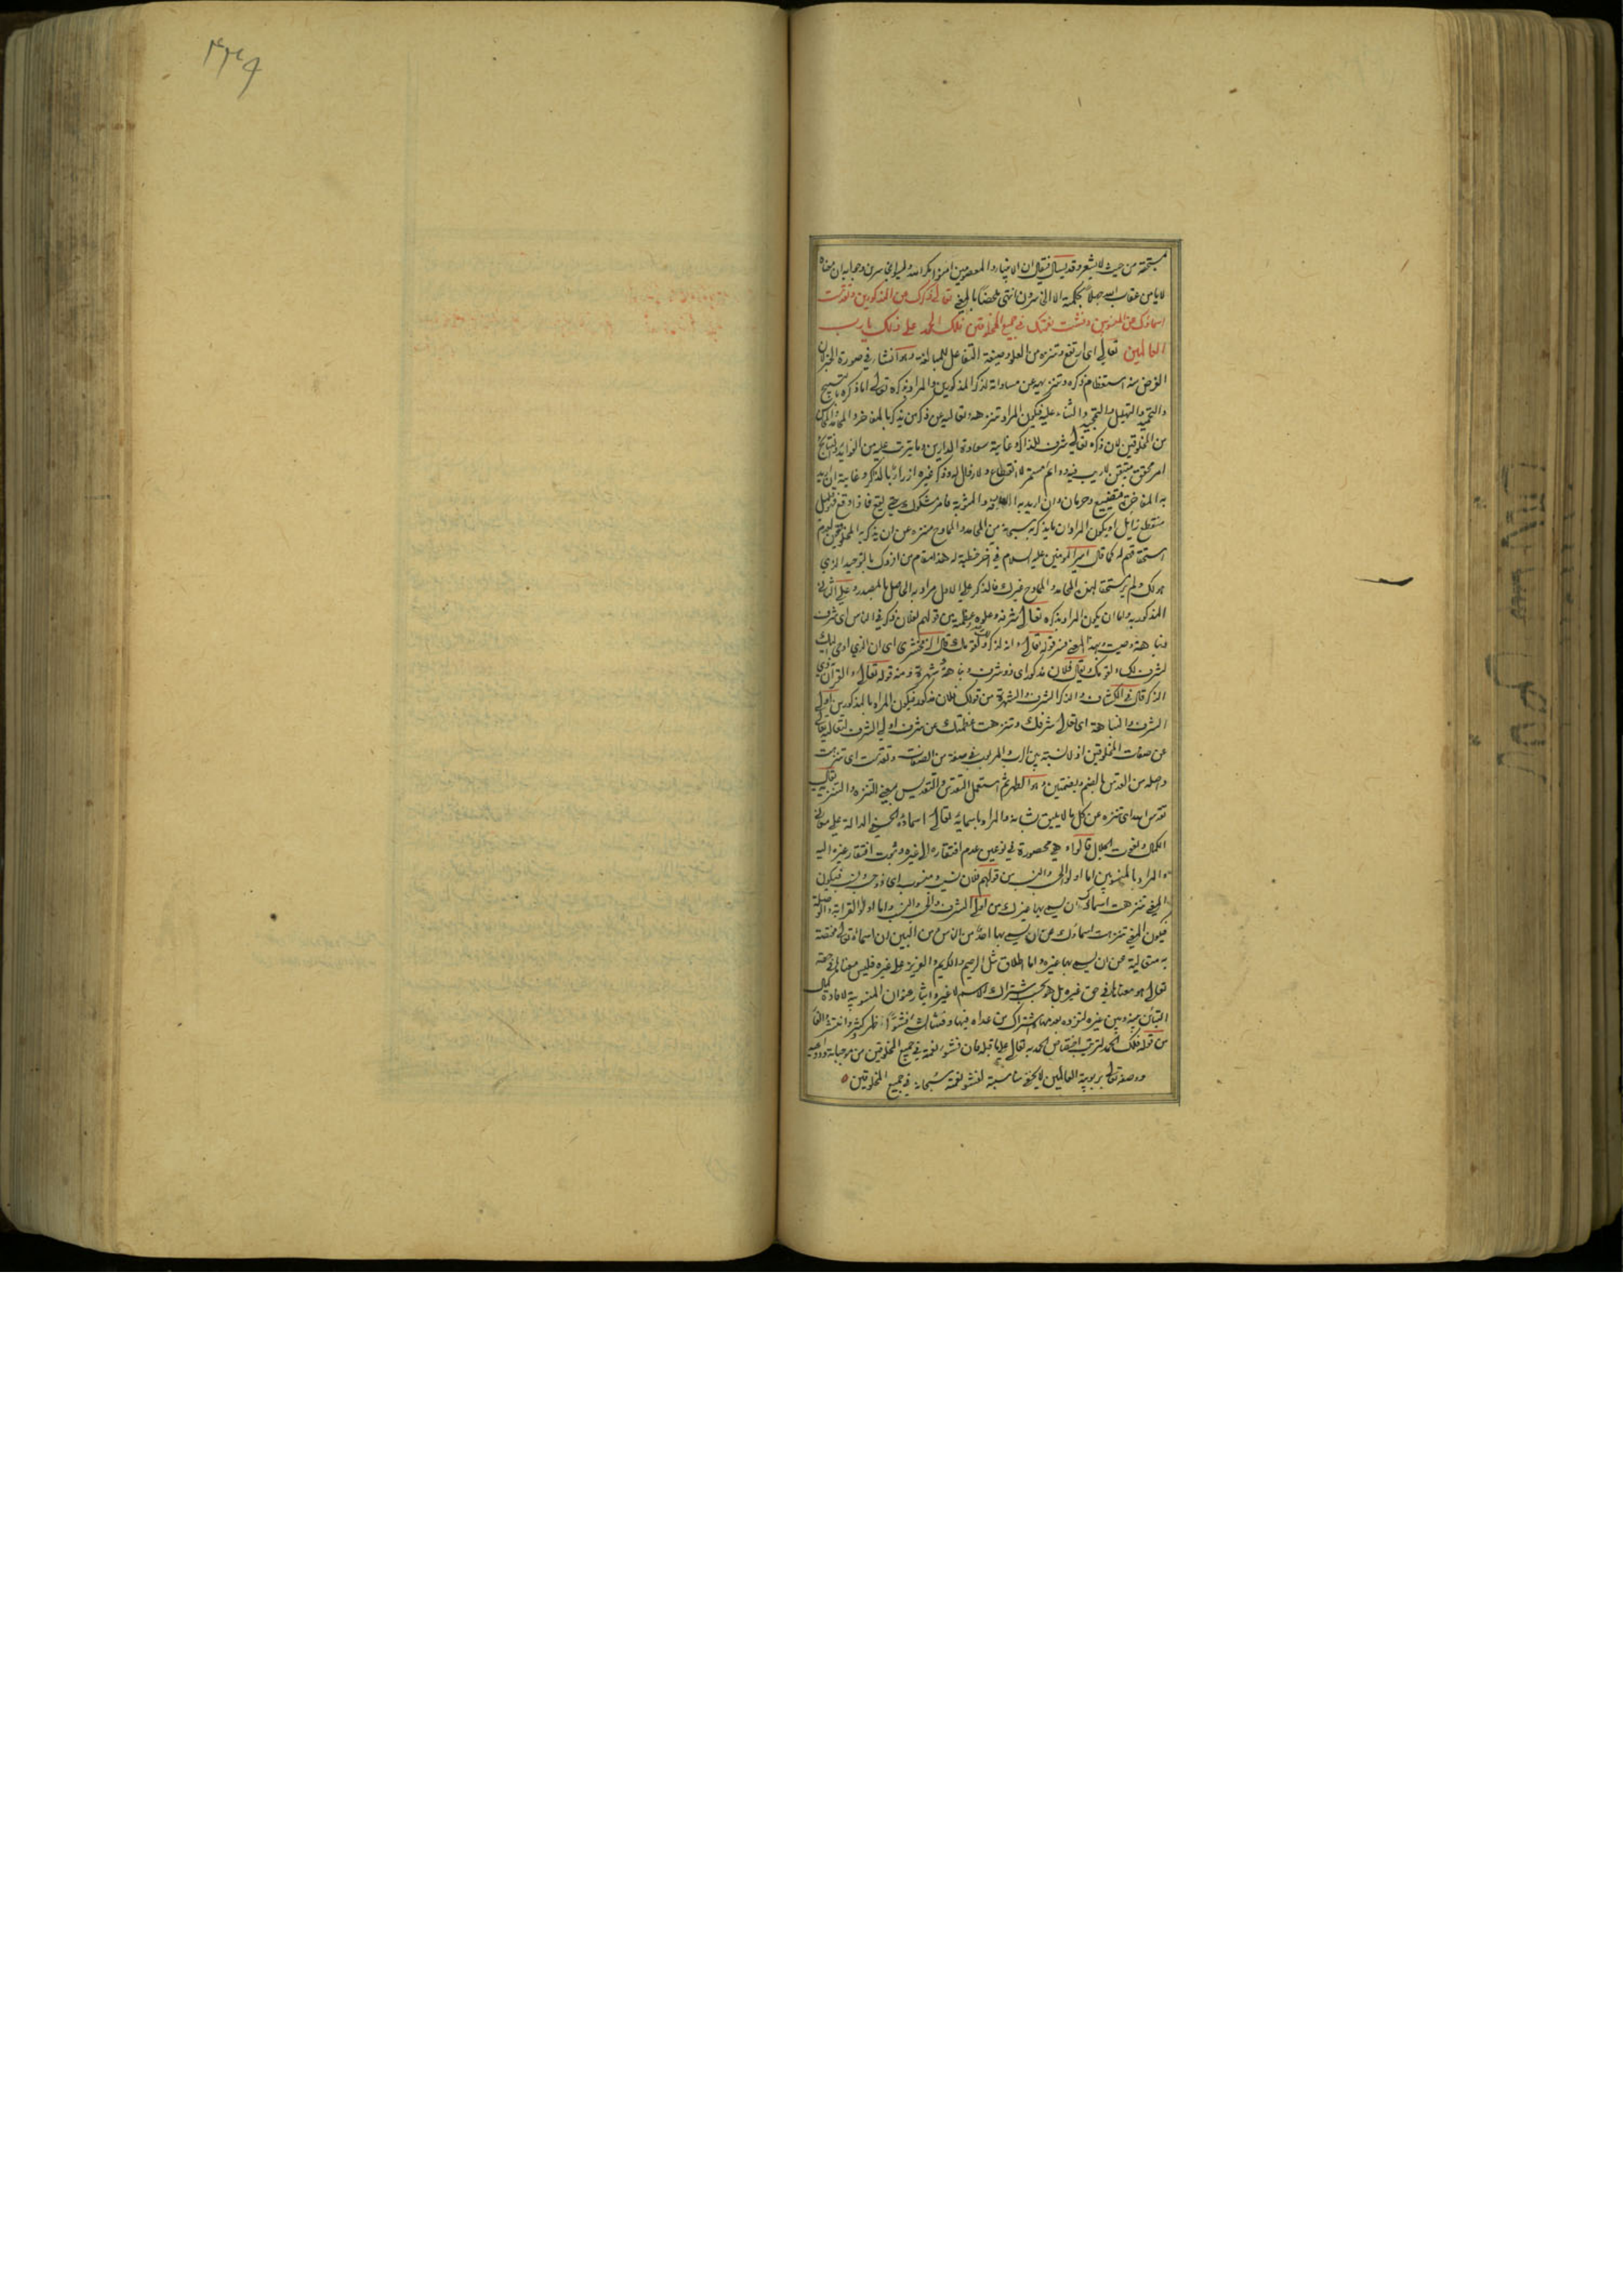 ۴۳۹
يستحقه من حيث لا يشعر وقد يسأل فيقال ان الانبياء والمعصومين امنوا مكر الله وليسوا بخاسرين وجوابه ان معناه
لا يأمن عقاب الله جهلا بحكمته الا الخاسرون انتهى ملخصا بالمعنى تعالى ذكرك عن المذكورين وتقدست
اسماؤك عن المنسوبين وفشت نعمتك في جميع المخلوقين فلك الحمد على ذلك يا رب
العالمين تعالى اى ارتفع وتنزه من العلو وصيغة التفاعل للمبالغة وهو انشاء في صورة الخبر لان
الغرض منه استعظام ذكره وتنزيهه عن مساواته لذكر المذكورين والمراد بذكره تعالى اما ذكره بالتسبيح
والتحميد والتهليل والتمجيد والثناء عليه فيكون المراد تنزهه وتعاليه عن ذكر من يذكر بالمفاخر والمحامد
من المخلوقين لان ذكره تعالى شرف للذاكر وغايته سعادة الدارين وما يترتب عليه من الفوايد والنتايج
امر محقق متيقن لا ريب فيه دائم مستمر لا انقطاع ولا زوال له وذكر غيره ازراء بالذاكر وغايته ان اريد
به المفاخرة تضييع وحرمان وان اريد به والمثوبة فامر مشكوك حتى يقع فاذا وقع فقليل
منقطع زايل او يكون المراد ان ما يذكر به سبحانه من المحامد والممادح منزه عن ان يذكر به المخلوقين لعدم
استحقاقهم له كما قال امير المومنين عليه السلام في اخر خطبة له هذا مقام من افردك بالتوحيد الذي
هو لك ولم ير مستحقا لهذه المحامد والممادح غيرك فالذكر على الاول مراد به الحاصل بالمصدر وعلى الثاني
المذكور به واما ان يكون المراد بذكره تعالى شرفه وعلوه وعظمته من قولهم لفلان ذكر في الناس اى شرف
ونباهة وصيت وبهذا المعنى فسر قوله تعالى وانه لذكر لك ولقومك قال الزمخشرى اى ان الذي اوحى اليك
لشرف لك ولقومك ويقال فلان مذكور اى ذو شرف ونباهة وشهرة ومنه قوله تعالى والقرآن ذي
الذكر قال في الكشاف والذكر الشرف والشهرة من قولك فلان مذكور فيكون المراد بالمذكورين اولى
الشرف والنباهة اى تعالى شرفك وتنزهت عظمتك عن شرف اولي الشرف لتعاليه تعالى
عن صفات المخلوقين اذ لا نسبة بين الرب والمربوب في صفة من الصفات وتقدست اى تنزهت
واصله من القدس بالضم وبضمتين وهو الطهر ثم استعمل التقدس والتقديس بمعنى التنزه والتنزيه يقال
تقدس الله اى تنزه عن كل ما لا يليق بشانه والمراد باسمائه تعالى اسماؤه الحسنى الدالة على معاني
الكمال ونعوت الجلال قالوا وهي محصورة في نوعين عدم افتقاره الى غيره وثبوت افتقار غيره اليه
والمراد بالمنسوبين اما اولوا الحسب والنسب من قولهم فلان نسيب ومنسوب اى ذو حسب ونسب فيكون
المعنى تنزهت اسماؤك ان يسمى بها غيرك من اولى الشرف والحسب والنسب واما اولوا القرابة والوصلة
فيكون المعنى تنزهت اسماؤك عن ان يسمى بها احد من الناس من البين ان اسماءه تعالى مختصة
به متعالية عن ان يسمى بها غيره واما اطلاق مثل الرحيم والكريم والعزيز على غيره فليس معناها في حقه
تعالى هو معناها في حق غيره بل هو بحسب اشتراك الاسم لا غير وايثار عنوان المنسوبية لافادة كمال
التباين بينه وبين غيره لتفرده بعدمها واشتراك من عداه فيها وفشا الشئ فشوا ظهر وكثر وانتشر والفاء
من قوله فلك الحمد لترتب اختصاص الحمد به تعالى على ما قبله فان فشو نعمته في جميع المخلوقين من موجباته ودواعيه
ووصفه تعالى بربوبية العالمين لا يخفى مناسبته لفشو نعمته سبحانه في جميع المخلوقين